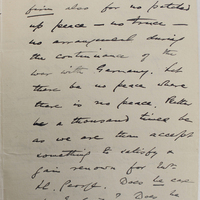 firm also for no patched
up peace – no truce –
no arrangement during
the continuance of the
war with Germany. Let
there be no peace where
there is no peace. Rather
be a thousand times be
as we are than accept
something to satisfy a
gain renown for
George. Does he care
? Does he